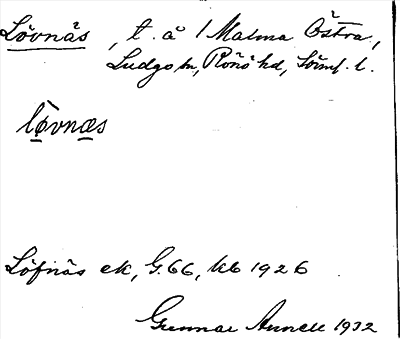 Lövnäs, t. å 1 Malma Östra,
Ludgo sn, Rönö hd, Söml. l.
lövnæs
Löfnäs ek, G. 66, kb 1926
Gunnar Annell 1932